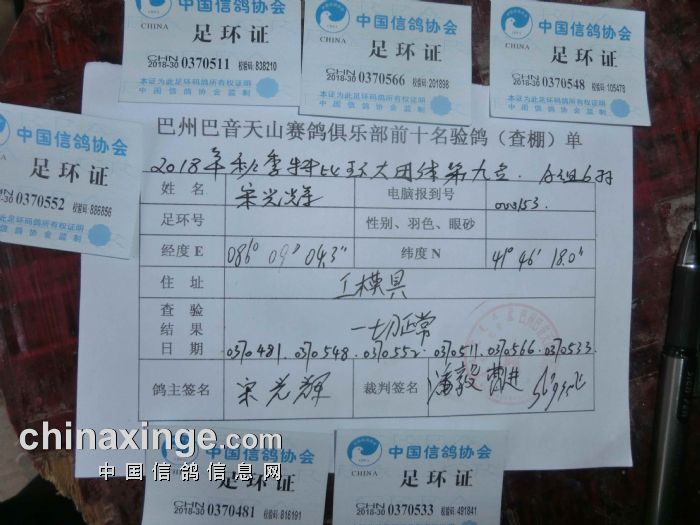 中国信鸽协会
CHINA
足环证
CHN
2018-30 0370511 校验码: 838210
本证为此足环码鸽所有权证明
中国信鸽协会监制
中国信鸽协会
CHINA
足环证
CHN
2018-30 0370566 校验码: 201898
本证为此足环码鸽所有权证明
中国信鸽协会监制
中国信鸽协会
CHINA
足环证
CHN
2018-30 0370548 校验码: 105478
本证为此足环码鸽所有权证明
中国信鸽协会监制
中国信鸽协会
足环证
0370552 校验码: 886856
此足环码鸽所有权证明
信鸽协会监制
巴州巴音天山赛鸽俱乐部前十名验鸽（查棚）单
2018年秋季特比环大团体第九名.
姓名 宋光辉 电脑报到号 000153.
足环号 性别、羽色、眼砂
经度E 086° 09' 04.3" 纬度N 41° 46' 18.0"
住址 工模具
查验
结果 一切正常
日期 0370481. 0370548. 0370552. 0370511. 0370566. 0370533
鸽主签名 宋光辉 裁判签名 潘毅
chinaxinge.com
中国信鸽信息网
中国信鸽协会
CHINA
足环证
CHN
2018-30 0370481 校验码: 816191
中国信鸽协会
CHINA
足环证
CHN
2018-30 0370533 校验码: 491841